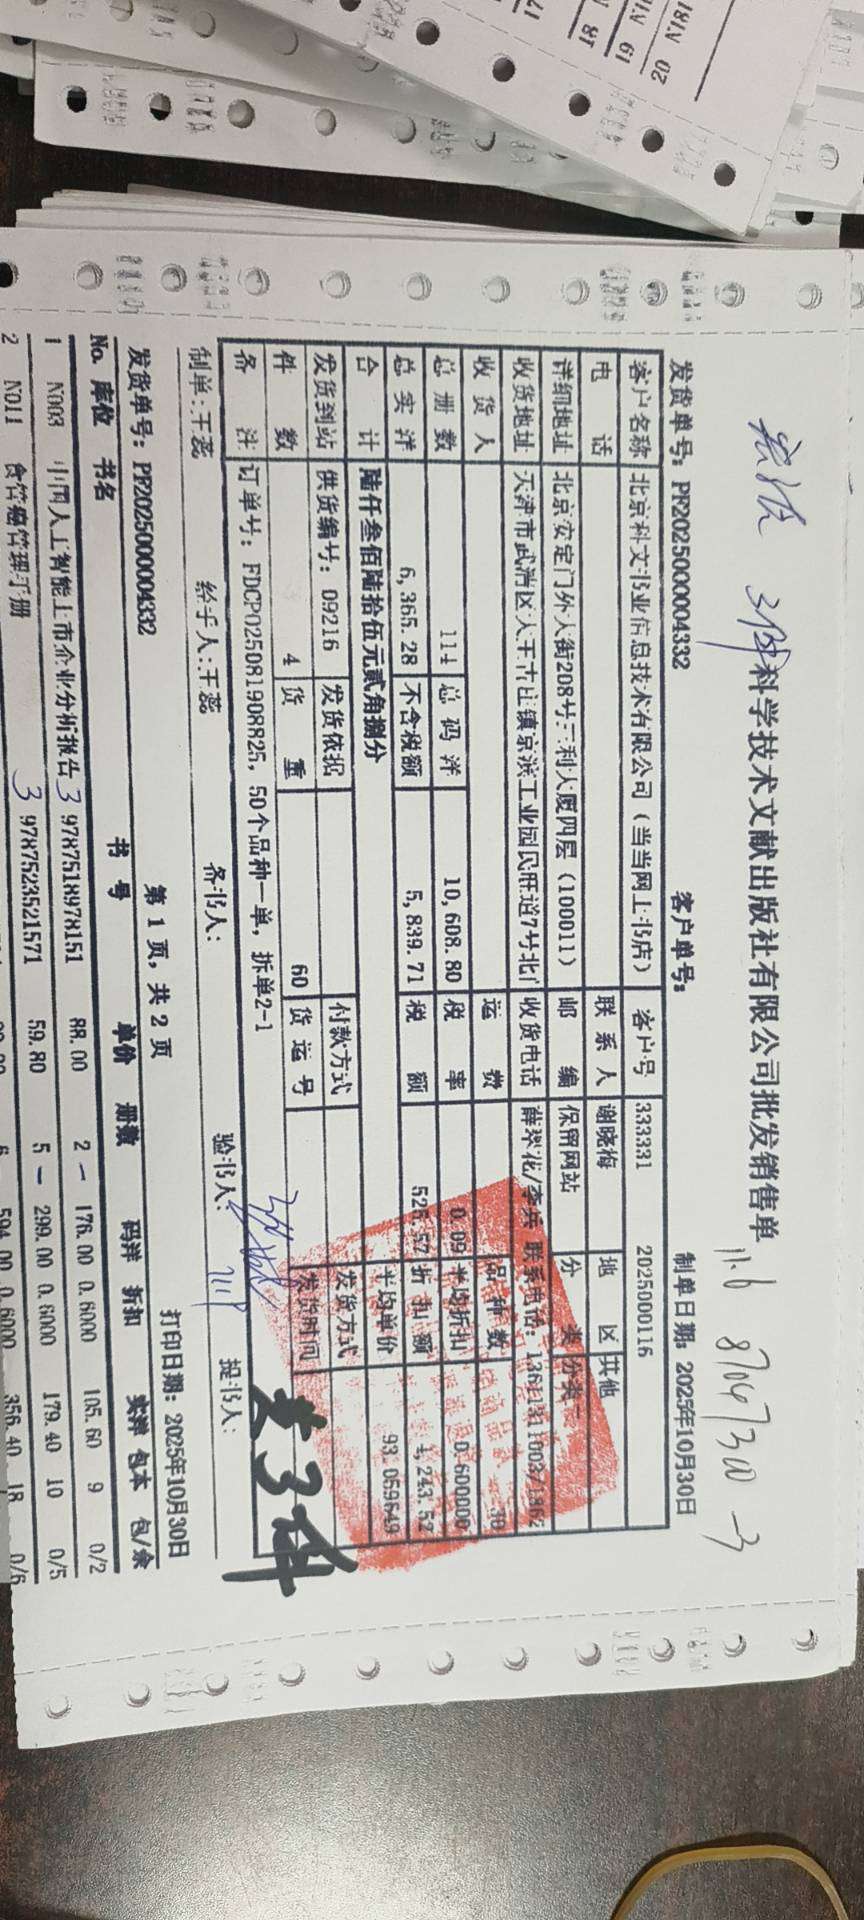 3件
科学技术文献出版社有限公司批发销售单
11.6 87047300-3
发货单号: PF2025000004332 客户单号: 制单日期: 2025年10月30日
客户名称 北京科文书业信息技术有限公司（当当网上书店） 客户号 333331 2025000116
电 话 联系人 谢晓梅 地 区 其他
详细地址 北京安定门外大街208号三利大厦四层（100011） 邮 编 保留网站 分 类 分类一
收货地址 天津市武清区大王古庄镇京滨工业园民旺道7号北门 收货电话 薛翠花/李兵 联系电话:
收货人 运 费 品种数 30
总册数 114 总码洋 10,608.80 税 率 0.09 平均折扣 0.600000
总实洋 6,365.28 不含税额 5,839.71 税 额 525.57 折扣额 4,243.52
合 计 陆仟叁佰陆拾伍元贰角捌分 平均单价 93.059649
发货到站 供货编号: 09216 发货依据 付款方式 发货方式
件 数 4 货 重 60 货运号 发货时间
备 注 订单号: FDCP025081908825, 50个品种一单, 拆单2-1
制单:王蕊 经手人:王蕊 备书人: 验书人: 提书人:
姜3件
第 1 页, 共 2 页 打印日期: 2025年10月30日
发货单号: PF2025000004332
No. 库位 书名 书 号 单价 册数 码洋 折扣 实洋 包本 包/余
1 N003 中国人工智能上市企业分析报告 3 9787518978151 88.00 2 176.00 0.6000 105.60 9 0/2
2 N011 食管癌管理手册 3 9787523521571 59.80 5 299.00 0.6000 179.40 10 0/5
6 594.00 0.6000 356.40 18 0/6
17
18
19
20 N181